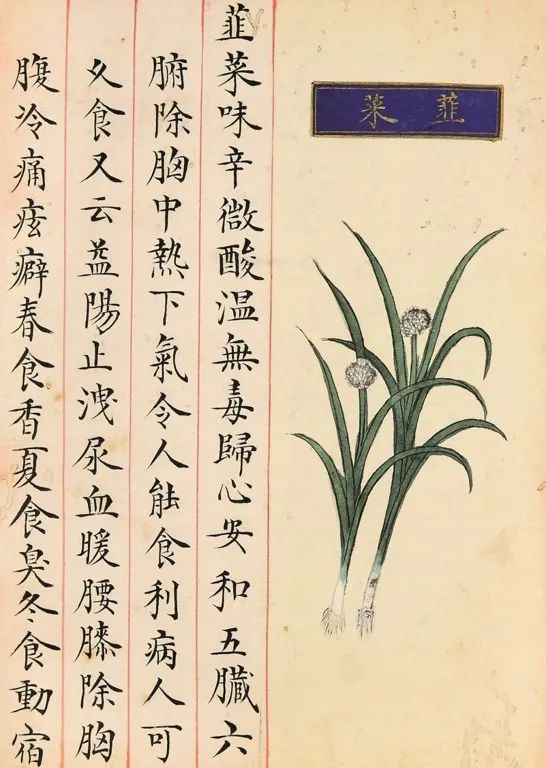 韮菜
韮菜味辛微酸温無毒歸心安和五臟六
腑除胸中熱下氣令人能食利病人可
久食又云益陽止洩尿血暖腰膝除胸
腹冷痛痃癖春食香夏食臭冬食動宿